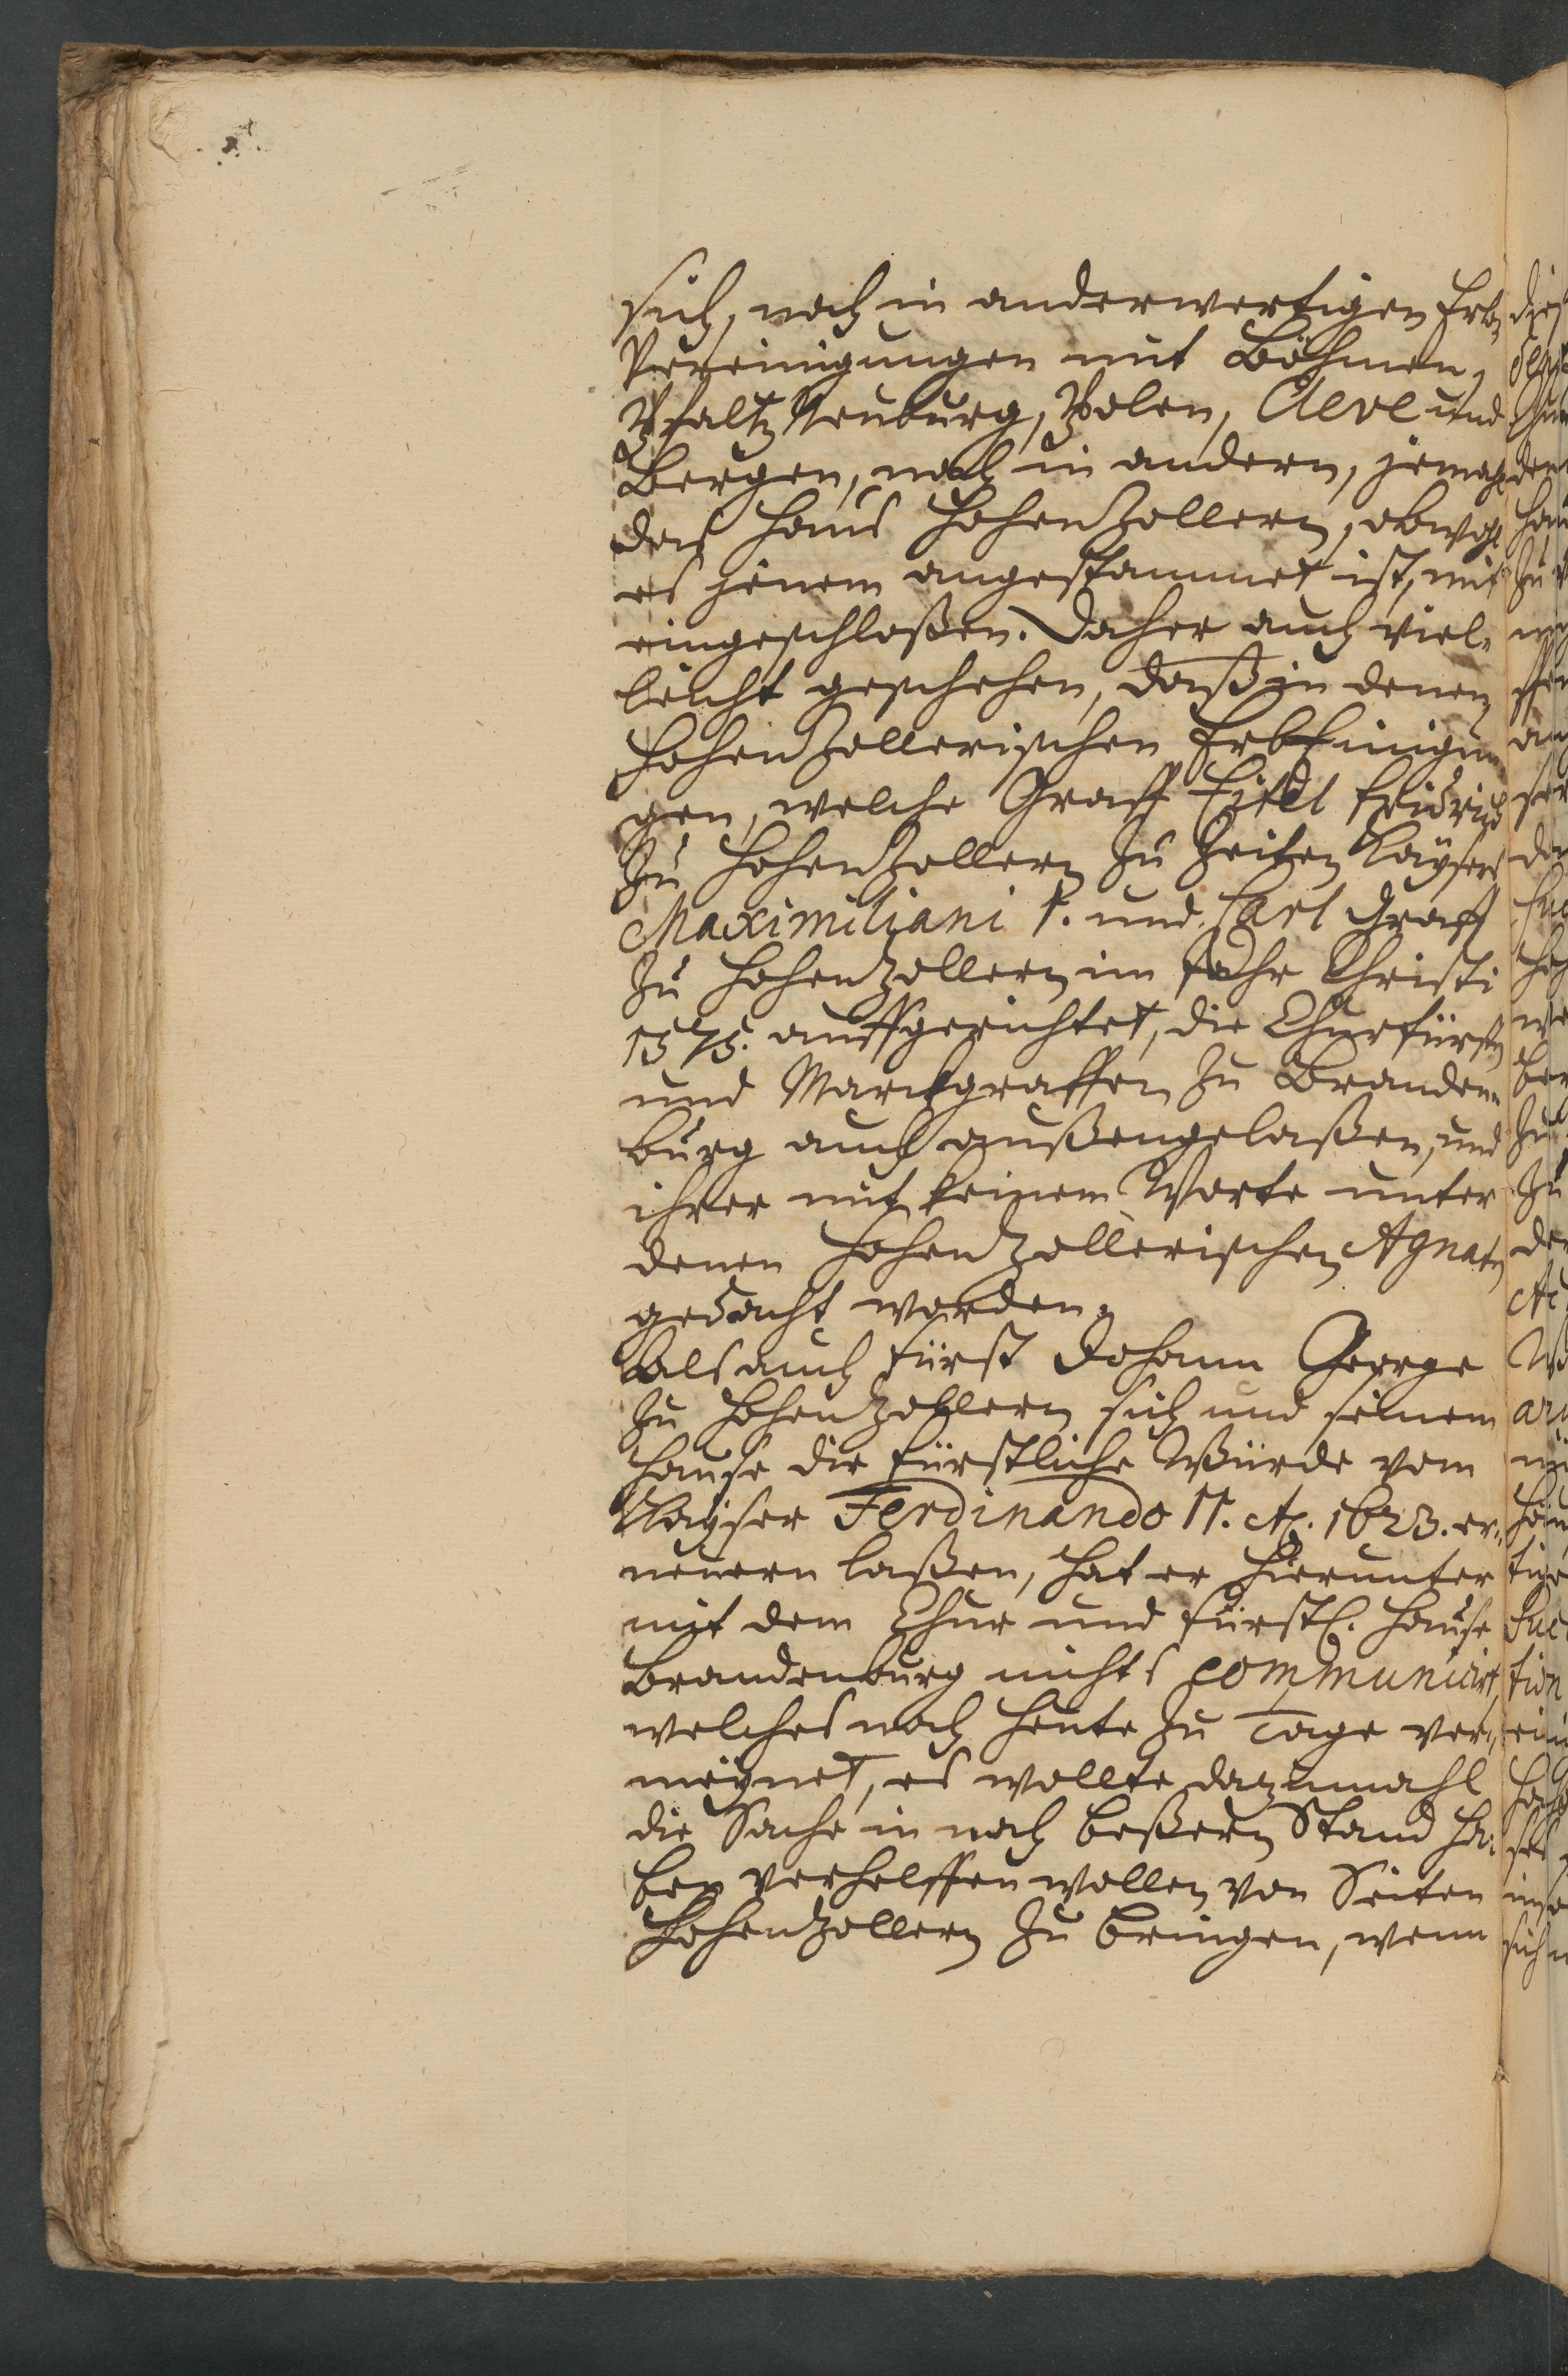 sich, noch in anderwertigen Erb-
Vereinigungen mit Böhmen,
Pfaltz Neuburg, Polen, Cleve und
Bergen, noch in andern, jemahl
das Haus Hohenzollern, obwohl
es jenem angestammet ist, mit
eingeschloßen. Daher auch viel-
leicht geschehen, daß in denen
Hohenzollerischen ErbEinigun
gen, welche Graff Eitel Fridrich
zu Hohenzollern zu Zeiten Kaysers
Maximiliani I. und Carl Graff
zu Hohenzollern im Jahr Christi
1575. auffgerichtet, die Churfürsten
und Marckgraffen zu Branden-
burg auch außengelaßen, und
ihrer mit keinem Worte unter
denen Hohenzollerischen Agnaten
gedacht worden.
Als auch Fürst Johann George
zu Hohenzollern sich und seinem
Hause die Fürstliche Würde vom
Kayser Ferdinando II. Ao. 1623. er-
neuern laßen, hat er hierunter
mit dem Chur und Fürstl. Hause
Brandenburg nichts communicirt,
welches noch heute zu Tage ver-
meynet, es wollte dazumahl
die Sache in noch beßern Stand ha-
ben verhelffen wollen von Seiten
Hohenzollern zu bringen, wenn